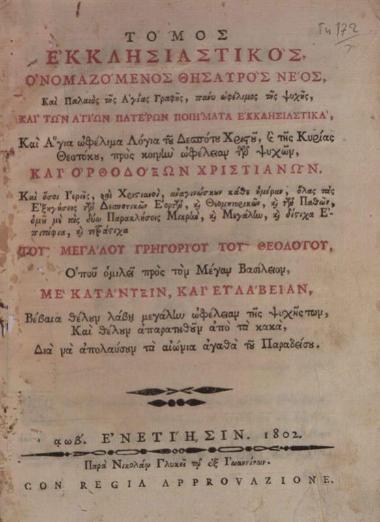 Γη 172
ΤΟΜΟΣ
ΕΚΚΛΗΣΙΑΣΤΙΚΟΣ,
Ο῾ΝΟΜΑΖΟ´ΜΕΝΟΣ ΘΗΣΑΥΡΟ`Σ ΝΕ´ΟΣ,
Καὶ Παλαιὸς τῆς Ἁγίας Γραφῆς, πάνυ ὠφέλιμος τῆς ψυχῆς,
ΚΑΙ` ΤΩ῀Ν ΑΓΙ´ΩΝ ΠΑΤΕ´ΡΩΝ ΠΟΙΗ´ΜΑΤΑ ἘΚΚΛΗΣΙΑΣΤΙΚΑ`,
Καὶ Ἅγια ὠφέλιμα Λόγια τοῦ Δεσπότου Χριστοῦ, καὶ τῆς Κυρίας
Θεοτόκου, πρὸς κοινὴν ὠφέλειαν τῶν ψυχῶν,
ΚΑΙ` Ο᾿ΡΘΟΔΟ´ΞΩΝ ΧΡΙΣΤΙΑΝΩ῀Ν.
Καὶ ὅσοι Ἱερεῖς, καὶ Χριστιανοὶ, ἀναγινώσκουν κάθε ἡμέραν, ὅλας τὰς
Ἐξηγήσεις τῶν Δεσποτικῶν Ἑορτῶν, καὶ Θεομητορικῶν, καὶ τῶν Παθῶν,
ὁμοῦ μὲ τὰς δύω Παρακλήσεις Μικρὰν, καὶ Μεγάλην, καὶ δίστιχα Ἐ-
πιτάφια, καὶ τετράστιχα
ΤΟΥ῀ ΜΕΓΑ´ΛΟΥ ΓΡΗΓΟΡΙ´ΟΥ ΤΟΥ῀ ΘΕΟΛΟ´ΓΟΥ,
Ὁποῦ ὁμιλεῖ πρὸς τὸν Μέγαν Βασίλειον,
ΜΕ` ΚΑΤΑ´ΝΥΞΙΝ, ΚΑΙ` ΕΥ᾿ΛΑ´ΒΕΙΑΝ,
Βέβαια θέλουν λάβῃ μεγάλην ὠφέλειαν τῆς ψυχῆς των,
Καὶ θέλουν ἀπαρατηθῶσιν ἀπὸ τὰ κακὰ,
Διὰ νὰ ἀπολαύσουν τὰ αἰώνια ἀγαθὰ τοῦ Παραδείσου.
αωβ´. Ε᾿ΝΕΤΙΉΣΙΝ. 1802.
Παρὰ Νικολάῳ Γλυκεῖ τῷ ἐξ Ἰωαννίνων.
CON REGIA APPROVAZIONE.